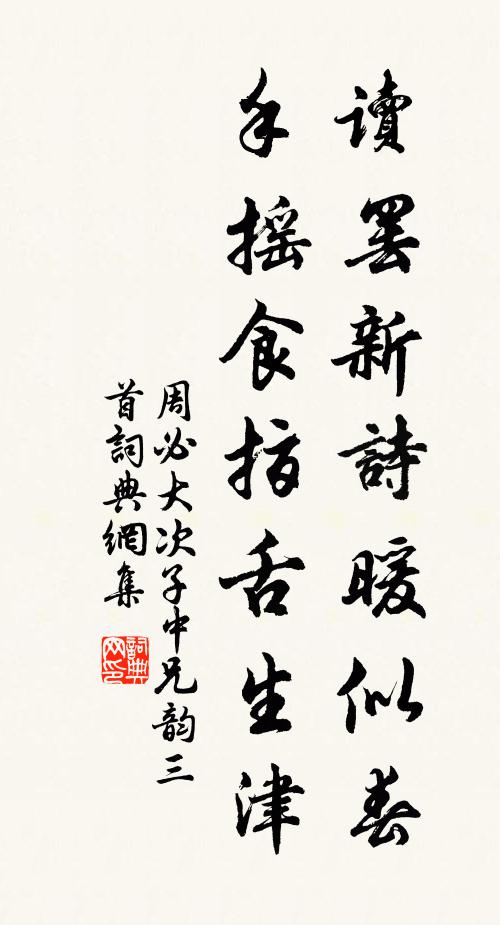 讀罷新詩暖似春
手搖食指舌生津
周必大次子中兄韵三
首詞典網集
詞典
网印